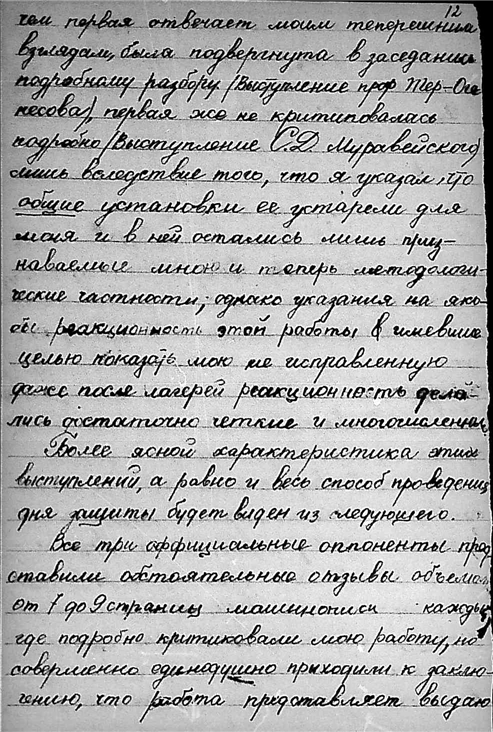 12
чем первая отвечает моим теперешним
взглядам, была подвергнута в заседании
подробному разбору (Выступление проф Тер-Ога
несова), первая же не критиковалась
подробно (Выступление С.Д. Муравейского)
лишь вследствие того, что я указал, что
общие установки ее устарели для
меня и в ней остались лишь приз-
наваемые мною и теперь методологи-
ческие частности; однако указания на яко-
бы реакционность этой работы и имевшие
целью показать мою не исправленную
даже после лагерей реакционность дела-
лись достаточно четкие и многочисленные.
Более ясной характеристика этих
выступлений, а равно и весь способ проведения
дня защиты будет виден из следующего.
Все три оффициальные оппоненты пред
ставили обстоятельные отзывы объемом
от 7 до 9 страниц машинописи каждый,
где подробно критиковали мою работу, но
совершенно единодушно приходили к заклю-
чению, что работа представляет выдаю